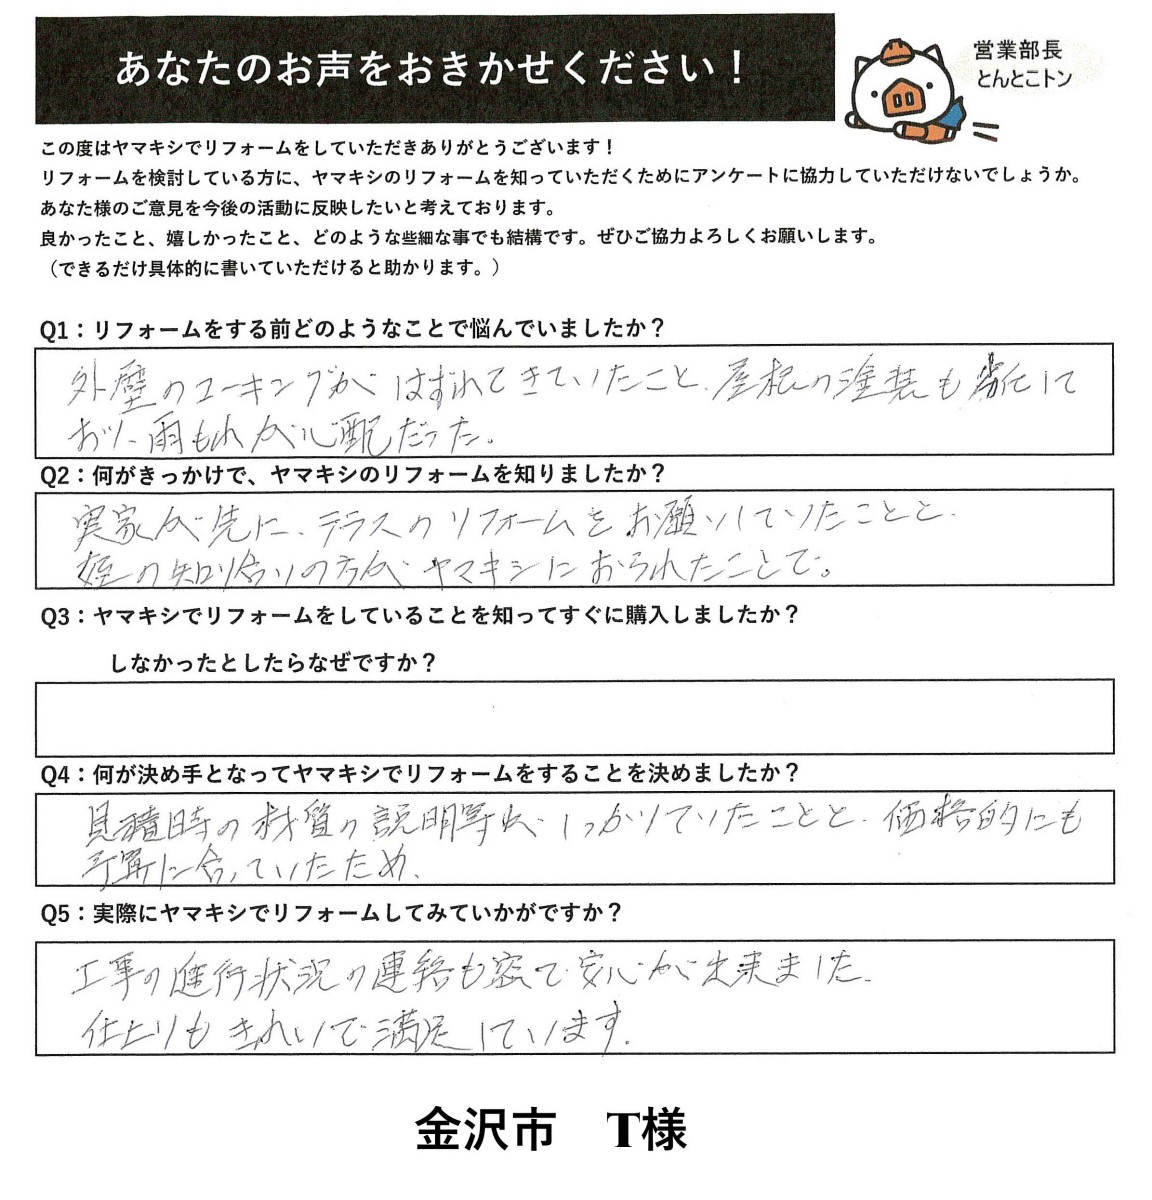 あなたのお声をおきかせください！
営業部長
とんとこトン
この度はヤマキシでリフォームをしていただきありがとうございます！
リフォームを検討している方に、ヤマキシのリフォームを知っていただくためにアンケートに協力していただけないでしょうか。
あなた様のご意見を今後の活動に反映したいと考えております。
良かったこと、嬉しかったこと、どのような些細な事でも結構です。ぜひご協力よろしくお願いします。
（できるだけ具体的に書いていただけると助かります。）
Q1：リフォームをする前どのようなことで悩んでいましたか？
外壁のコーキングが はずれてきていたこと、屋根の塗装も 劣化して
おり、雨もれが心配だった。
Q2：何がきっかけで、ヤマキシのリフォームを知りましたか？
実家が先に、テラスのリフォームをお願いしていたことと、
姪の知り合いの方が ヤマキシにおられたことで。
Q3：ヤマキシでリフォームをしていることを知ってすぐに購入しましたか？
しなかったとしたらなぜですか？
Q4：何が決め手となってヤマキシでリフォームをすることを決めましたか？
見積時の材質の説明等が しっかりしていたことと、価格的にも
予算に合っていたため、
Q5：実際にヤマキシでリフォームしてみていかがですか？
工事の進行状況の連絡も密で 安心が出来ました。
仕上りもきれいで満足しています。
金沢市　T様